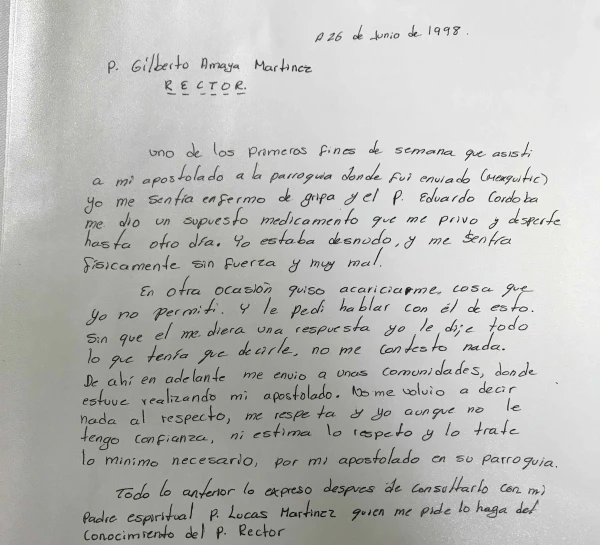 A 26 de Junio de 1998.
P. Gilberto Amaya Martinez
RECTOR.
Uno de los primeros fines de semana que asisti
a mi apostolado a la parroquia donde fui enviado (Mexquitic)
yo me sentía enfermo de gripa y el P. Eduardo Cordoba
me dio un supuesto medicamento que me privo y desperte
hasta otro día. Yo estaba desnudo, y me sentía
fisicamente sin fuerza y muy mal.
En otra ocasión quiso acariciarme, cosa que
yo no permiti. Y le pedi hablar con él de esto.
Sin que el me diera una respuesta yo le dije todo
lo que tenía que decirle, no me contesto nada.
De ahí en adelante me envio a unas comunidades, donde
estuve realizando mi apostolado. No me volvio a decir
nada al respecto, me respeta y yo aunque no le
tengo confianza, ni estima lo respeto y lo trate
lo minimo necesario, por mi apostolado en su parroquia.
Todo lo anterior lo expreso despues de consultarlo con mi
Padre espiritual P. Lucas Martinez quien me pide lo haga del
Conocimiento del P. Rector